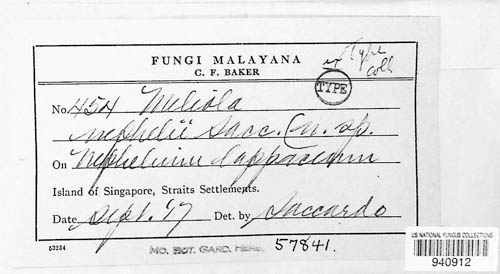 Type
coll
FUNGI MALAYANA
C. F. BAKER
TYPE
No. 454 Meliola
nephelii Sacc. (n. sp.
On Nephelium lappaceum
Island of Singapore, Straits Settlements.
Date Sept. '17 Det. by Saccardo
53234
MO. BOT. GARD. HERB. 57841.
US NATIONAL FUNGUS COLLECTIONS
940912